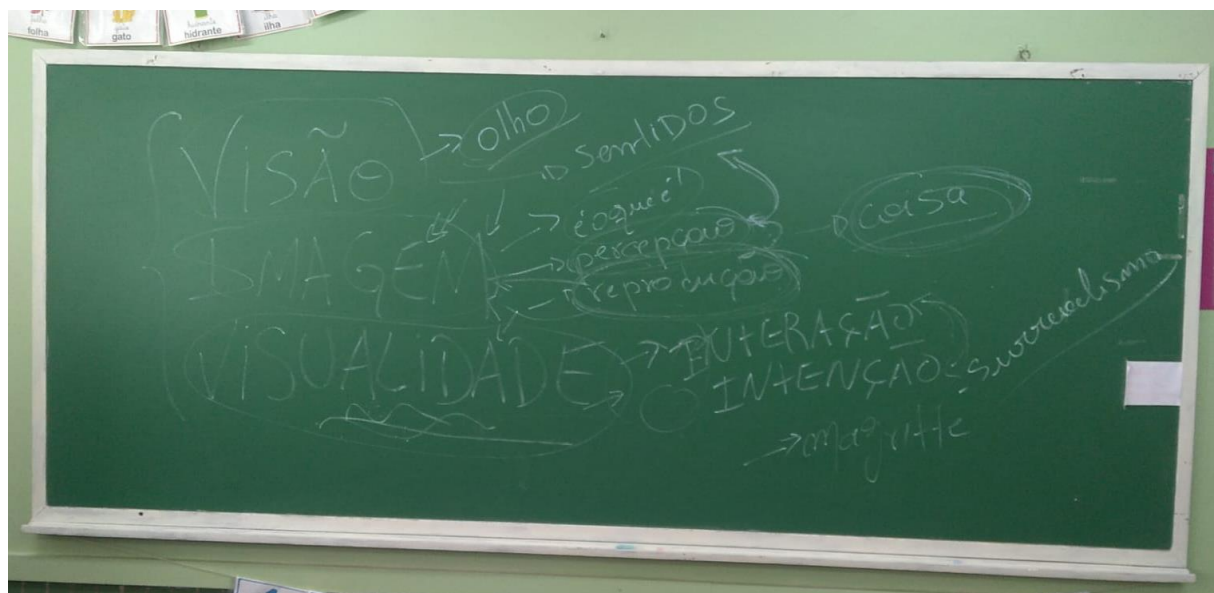 folha
gato
hidrante
ilha
VISÃO → olho
→ SentIDOS
IMAGEM → é o que é!
→ percepção → coisa
→ reprodução
VISUALIDADE → INTERAÇÃO
→ INTENÇÃO = surrealismo
→ magritte